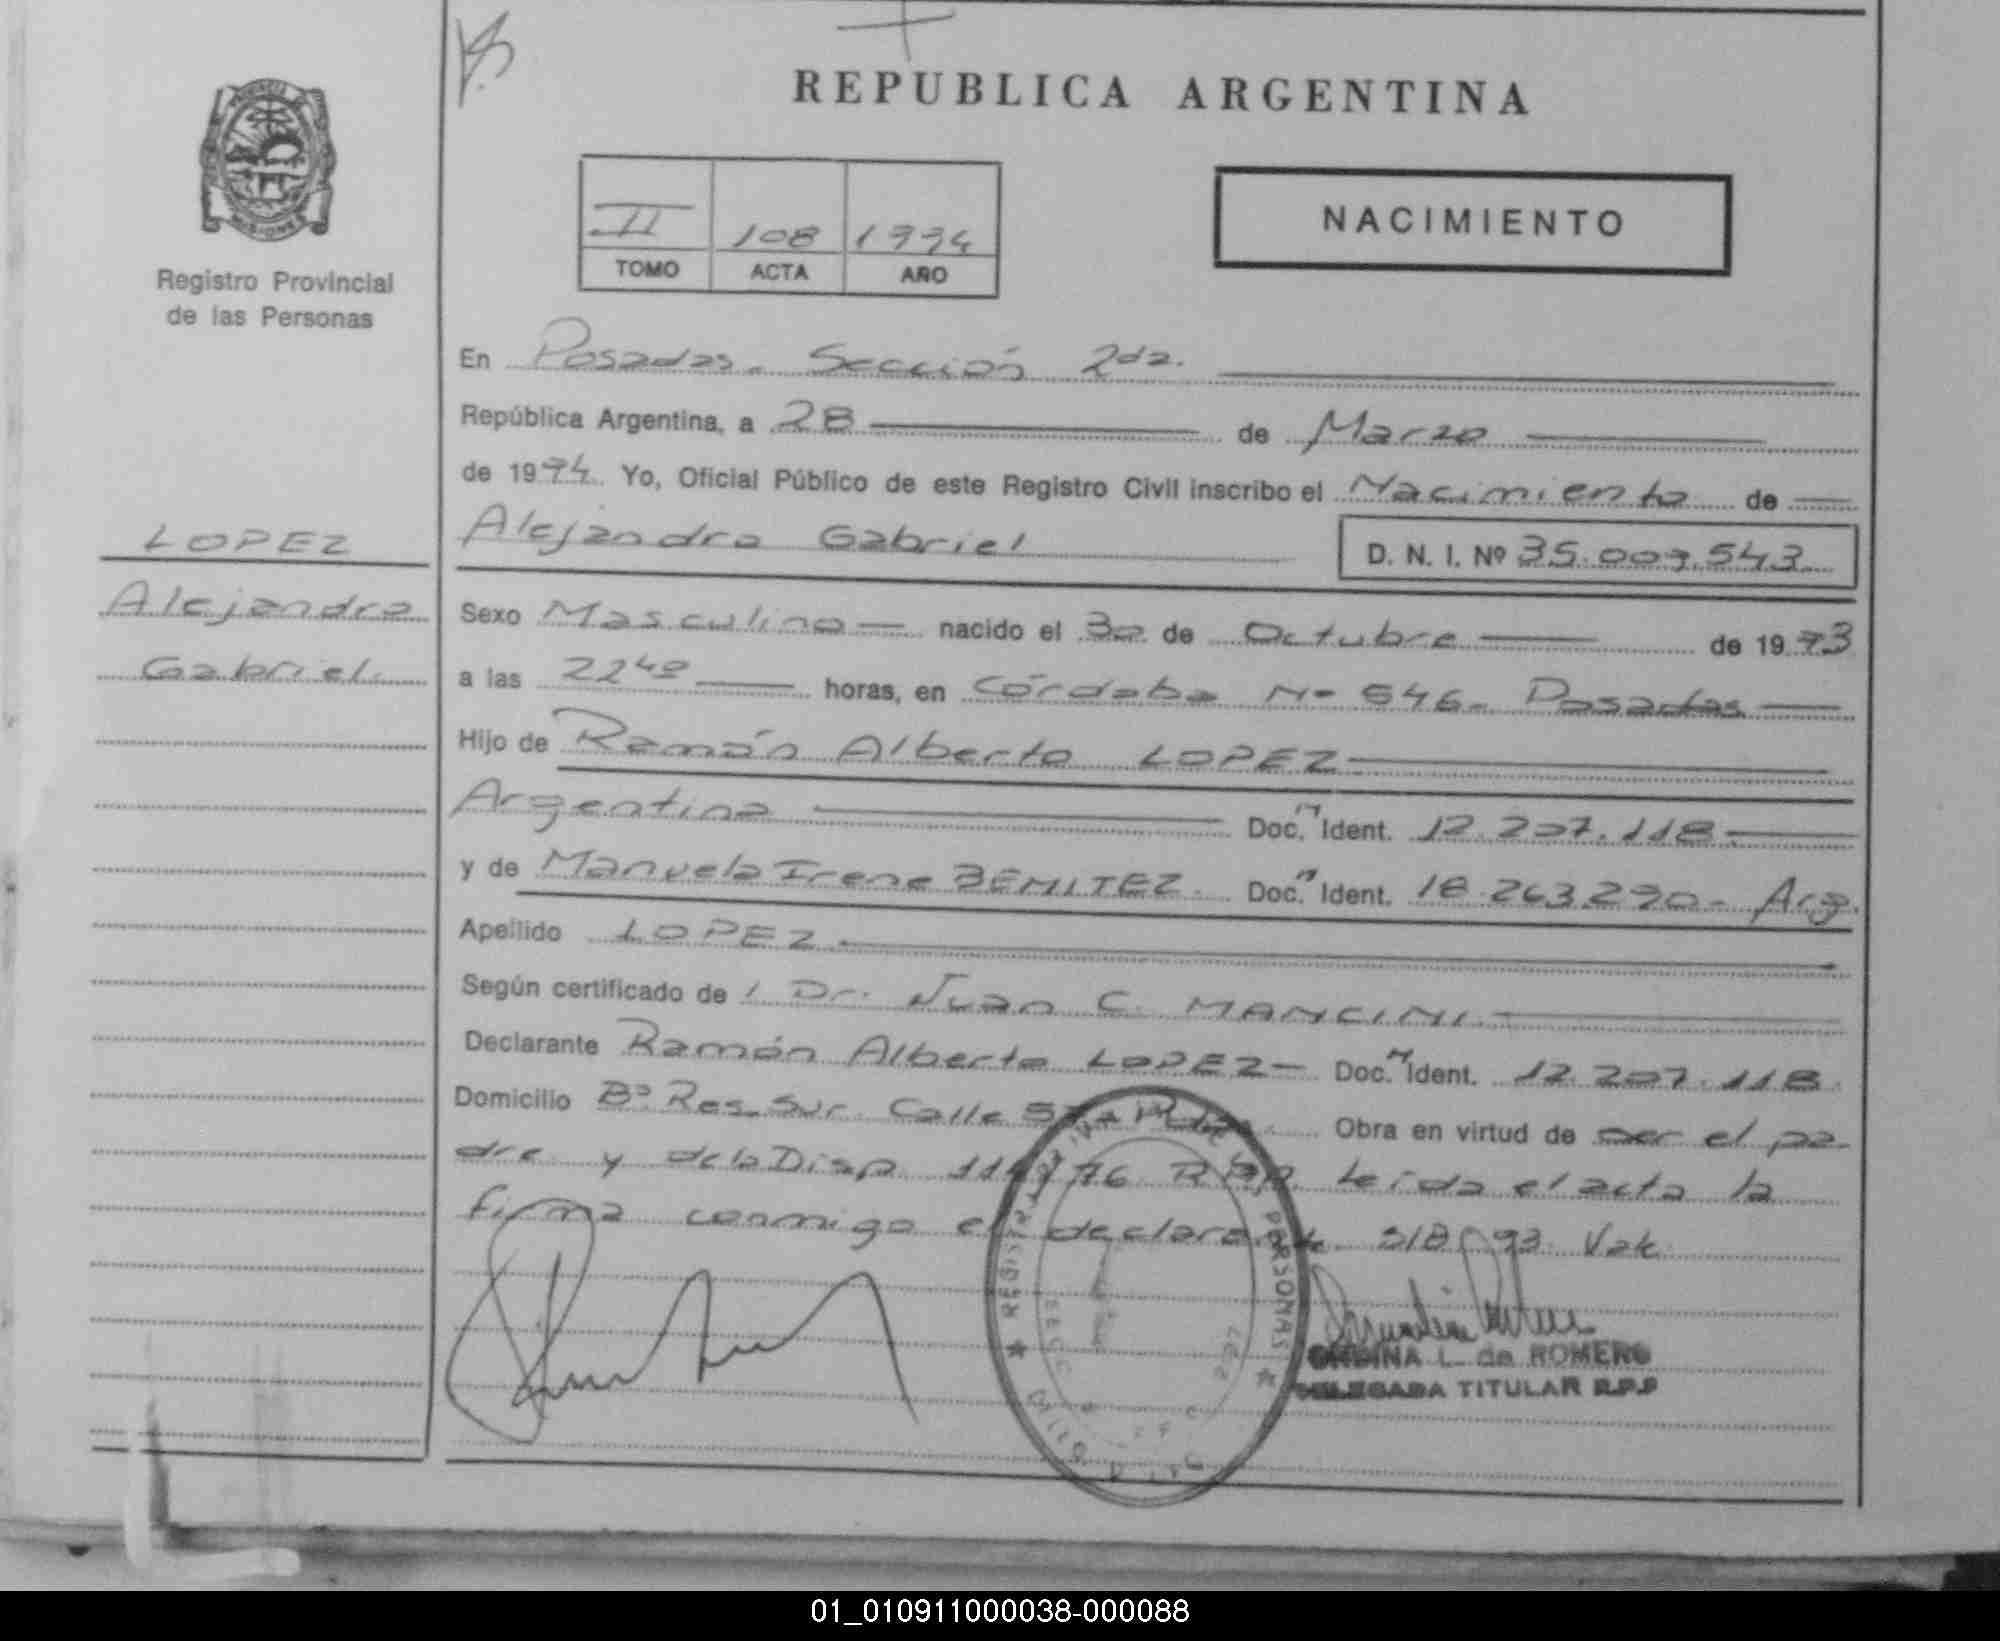 REPUBLICA ARGENTINA
PROVINCIA DE
MISIONES
Registro Provincial
de las Personas
II 108 1994
TOMO ACTA AÑO
NACIMIENTO
En Posadas. Sección 2da.
República Argentina, a 28 de Marzo
de 1994. Yo, Oficial Público de este Registro Civil inscribo el Nacimiento de
LOPEZ
Alejandro
Gabriel.
Alejandro Gabriel
D. N. I. Nº 35.007.543.
Sexo Masculino nacido el 30 de Octubre de 1993
a las 22⁴⁰ horas, en Córdoba Nº 546. Posadas
Hijo de Ramón Alberto LOPEZ
Argentino Doc. M Ident. 12.207.118.
y de Manuela Irene BENITEZ. Doc. Ident. 18.263.290- Arg.
Apellido LOPEZ
Según certificado de / Dr. Juan C. MANCINI.
Declarante Ramón Alberto LOPEZ Doc. M Ident. 12.207.118.
Domicilio Bº Res. Sur. Calle Obra en virtud de ser el pa-
dre y de la Disp. 76 Leída el acta la
firma conmigo el declarante. 93
REGISTRO DE PERSONAS
L. de ROMERO
DELEGADA TITULAR R.P.P
01_010911000038-000088